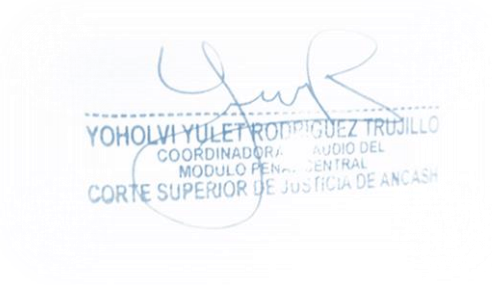 YOHOLVI YULET RODRIGUEZ TRUJILLO
COORDINADORA AUDIO DEL
MODULO PENAL CENTRAL
CORTE SUPERIOR DE JUSTICIA DE ANCASH